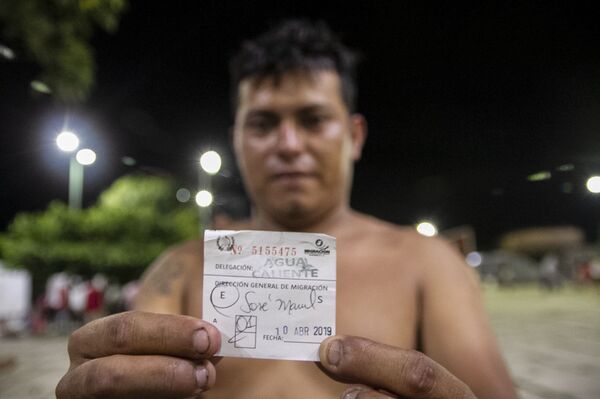 Nº 5155475
MIGRACIÓN
DELEGACIÓN: AGUA CALIENTE
DIRECCIÓN GENERAL DE MIGRACIÓN
E José Manuel S
A
FECHA: 10 ABR 2019